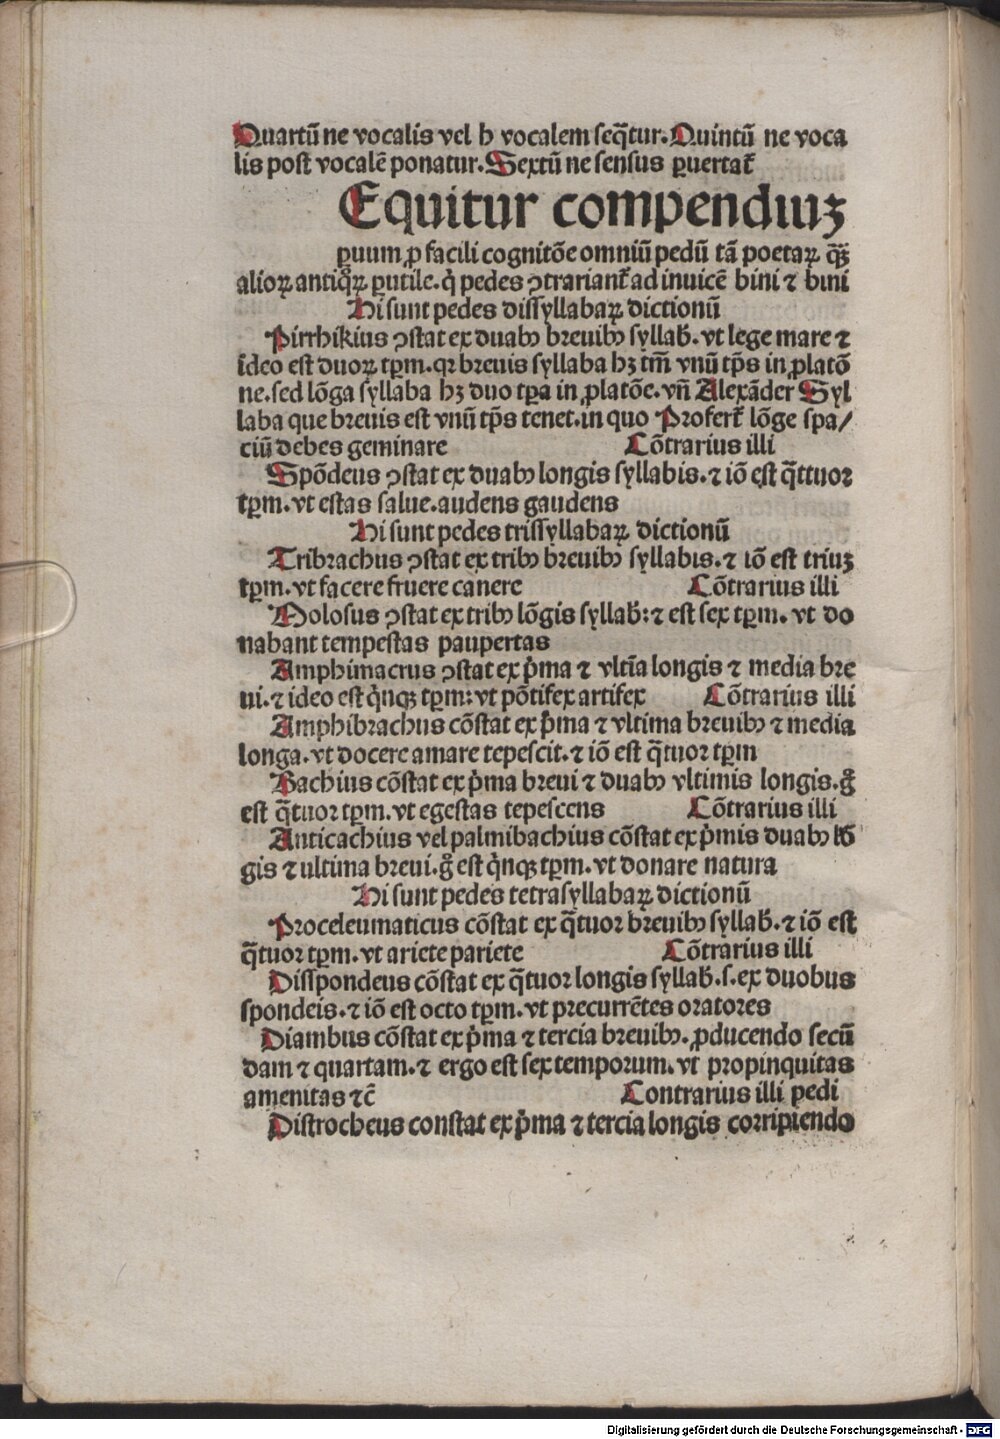 Quartū ne vocalis vel h vocalem seq̄tur. Quintū ne voca
lis post vocalē ponatur. Sextū ne sensus ꝑuertat᷑
Equitur compendiuꝫ
ꝑuum ꝓ facili cognitōe omniū pedū tā poetaꝝ q̄ꝫ
alioꝝ antiq̊ꝝ ꝑutile. q̇ pedes ꝯtrariant᷑ ad inuicē bini ⁊ bini
Hi sunt pedes dissyllabaꝝ dictionū
Pirrhikius ꝯstat ex duabꝰ breuibꝰ syllab̄. vt lege mare ⁊
ideo est duoꝝ tꝑm. qꝛ breuis syllaba hꝫ tm̄ vnū tp̄s in ꝓlatō
ne. sed lōga syllaba hꝫ duo tꝑa in ꝓlatōe. vn̄ Alexāder Syl
laba que breuis est vnū tp̄s tenet. in quo Profert᷑ lōge spa/
ciū debes geminare Cōtrarius illi
Spōdeus ꝯstat ex duabꝰ longis syllabis. ⁊ iō est q̄ttuoꝛ
tꝑm. vt estas salue. audens gaudens
Hi sunt pedes trissyllabaꝝ dictionū
Tribrachus ꝯstat ex tribꝰ breuibꝰ syllabis. ⁊ iō est triuꝫ
tꝑm. vt facere fruere canere Cōtrarius illi
Molosus ꝯstat ex tribꝰ lōgis syllab̄: ⁊ est sex tꝑm. vt do
nabant tempestas paupertas
Amphimacrus ꝯstat ex p̄ma ⁊ vltīa longis ⁊ media bre
ui. ⁊ ideo est q̇nqꝫ tꝑm: vt pōtifex artifex Cōtrarius illi
Amphibrachus cōstat ex p̄ma ⁊ vltima breuibꝰ ⁊ media
longa. vt docere amare tepescit. ⁊ iō est q̄tuor tꝑm
Bachius cōstat ex p̄ma breui ⁊ duabꝰ vltimis longis. g̊
est q̄tuor tꝑm. vt egestas tepescens Cōtrarius illi
Anticachius vel palmibachius cōstat ex p̄mis duabꝰ lō
gis ⁊ ultima breui. g̊ est q̇nqꝫ tꝑm. vt donare natura
Hi sunt pedes tetrasyllabaꝝ dictionū
Proceleumaticus cōstat ex q̄tuor breuibꝰ syllab̄. ⁊ iō est
q̄tuor tꝑm. vt ariete pariete Cōtrarius illi
Disspondeus cōstat ex q̄tuor longis syllab̄. s. ex duobus
spondeis. ⁊ iō est octo tꝑm. vt precurrētes oratores
Diambus cōstat ex p̄ma ⁊ tercia breuibꝰ. ꝓducendo secū
dam ⁊ quartam. ⁊ ergo est sex temporum. vt propinquitas
amenitas ⁊c̄ Contrarius illi pedi
Distrocheus constat ex p̄ma ⁊ tercia longis corripiendo
Digitalisierung gefördert durch die Deutsche Forschungsgemeinschaft - DFG